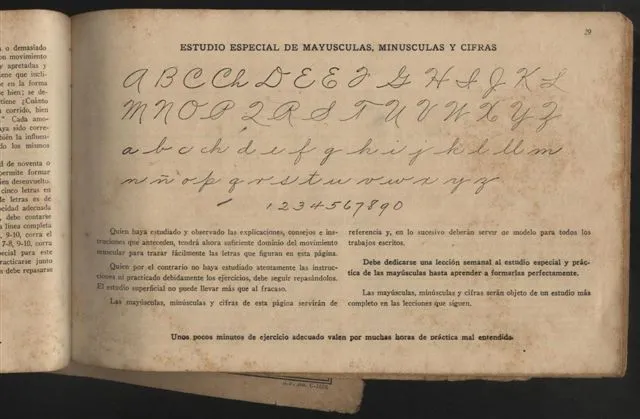 o demasiado
on movimiento
y apretadas y
ene que incli-
e en la forma
e bien; se de-
tiene ¿Cuánto
corrido, bien
." Cada amo-
aya sido corre-
bién la influen-
do los mismos
d de noventa o
permite formar
ien desenvuelto.
cinco letras en
e letras es de
ocidad adecuada
, debe contarse
a línea completa
, 9-10, corra el
7-8, 9-10, corra
pecial para este
racticarse junto
debe repasarlas
29
ESTUDIO ESPECIAL DE MAYUSCULAS, MINUSCULAS Y CIFRAS
A B C Ch D E E F G H I J K L
M N O P Q R S T U V W X Y Z
a b c ch d e f g h i j k l ll m
n ñ o p q r s t u v w x y z
1 2 3 4 5 6 7 8 9 0
Quien haya estudiado y observado las explicaciones, consejos e ins-
trucciones que anteceden, tendrá ahora suficiente dominio del movimiento
muscular para trazar fácilmente las letras que figuran en esta página.
Quien por el contrario no haya estudiado atentamente las instruc-
ciones ni practicado debidamente los ejercicios, debe seguir repasándolos.
El estudio superficial no puede llevar más que al fracaso.
Las mayúsculas, minúsculas y cifras de esta página servirán de
referencia y, en lo sucesivo deberán servir de modelo para todos los
trabajos escritos.
Debe dedicarse una lección semanal al estudio especial y prác-
tica de las mayúsculas hasta aprender a formarlas perfectamente.
Las mayúsculas, minúsculas y cifras serán objeto de un estudio más
completo en las lecciones que siguen.
Unos pocos minutos de ejercicio adecuado valen por muchas horas de práctica mal entendida.